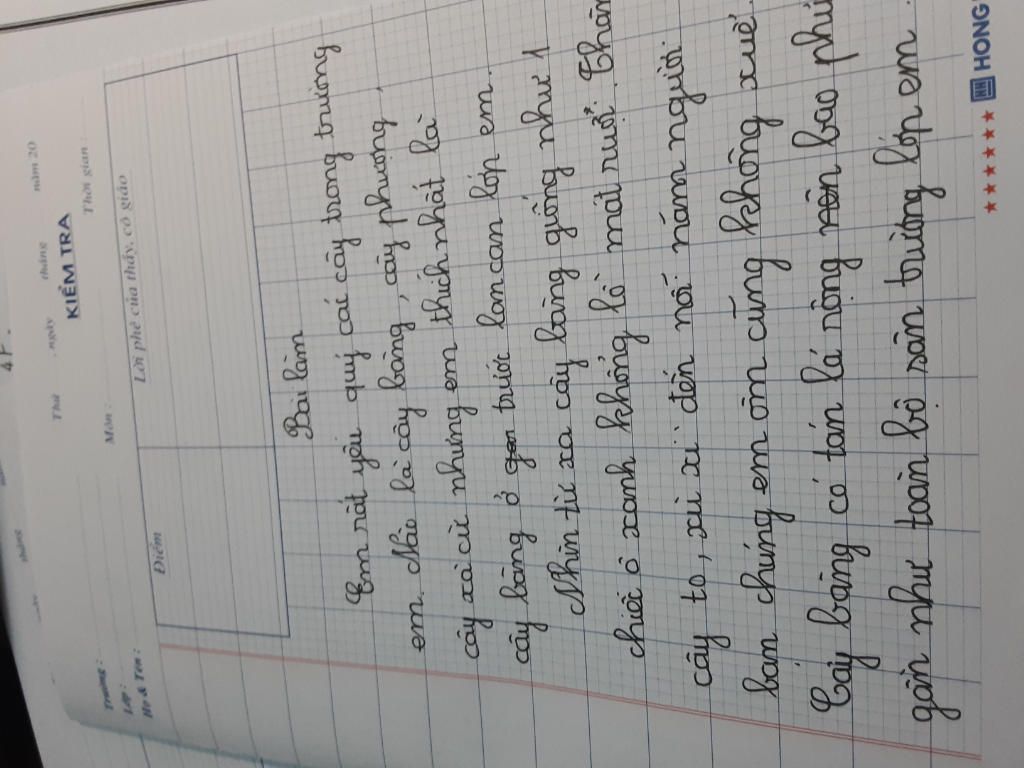 4 F
Thứ ngày tháng năm 20
KIỂM TRA
Trường :
Lớp :
Họ & Tên :
Môn :
Thời gian :
Điểm
Lời phê của thầy, cô giáo
Bài làm
Em rất yêu quý cái cây trong trường
em. Nào là cây bàng, cây phượng,
cây xà cừ nhưng em thích nhất là
cây bàng ở trước lan can lớp em.
Nhìn từ xa cây bàng giống như 1
chiếc ô xanh khổng lồ mát rượi. Thân
cây to, xù xì đến nỗi năm người
bạn chúng em ôm cũng không xuể.
Cây bàng có tán lá rộng nên bao phủ
gần như toàn bộ sân trường lớp em.
HONG